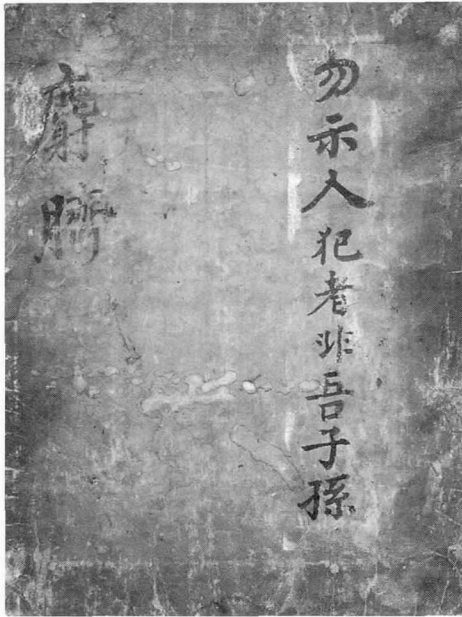 勿示人犯者非吾子孫
麝臍